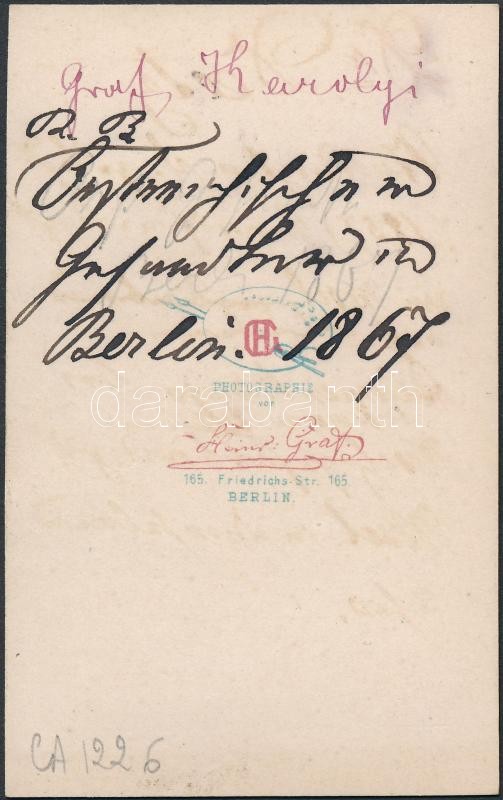 Graf Karolyi
Österreichischer
Gesandter in
Berlin. 1867
darabanth
GH
PHOTOGRAPHIE
von
Heinr: Graf.
165. Friedrichs-Str. 165
BERLIN.
CA 1226